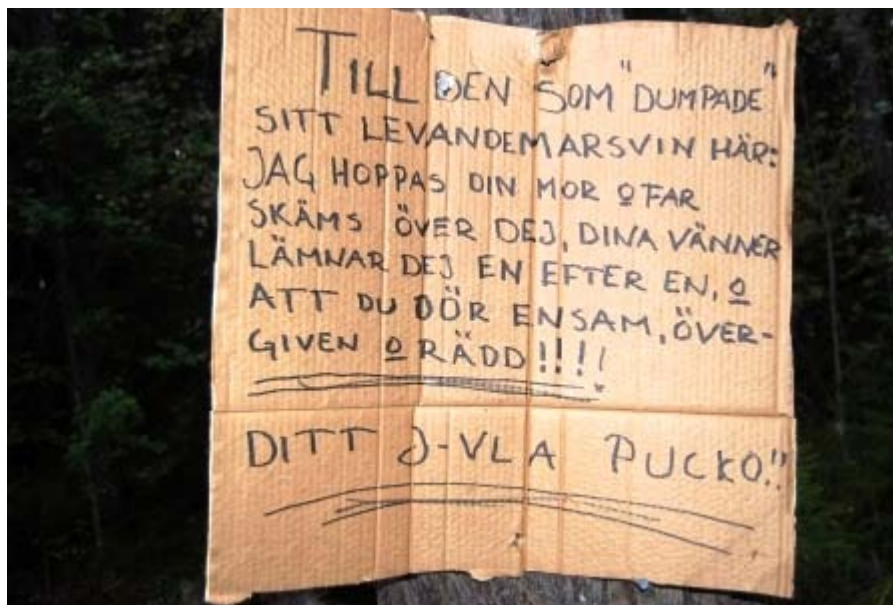 TILL DEN SOM "DUMPADE"
SITT LEVANDE MARSVIN HÄR:
JAG HOPPAS DIN MOR O FAR
SKÄMS ÖVER DEJ, DINA VÄNNER
LÄMNAR DEJ EN EFTER EN, O
ATT DU DÖR ENSAM, ÖVER-
GIVEN O RÄDD!!!!
DITT J-VLA PUCKO!!